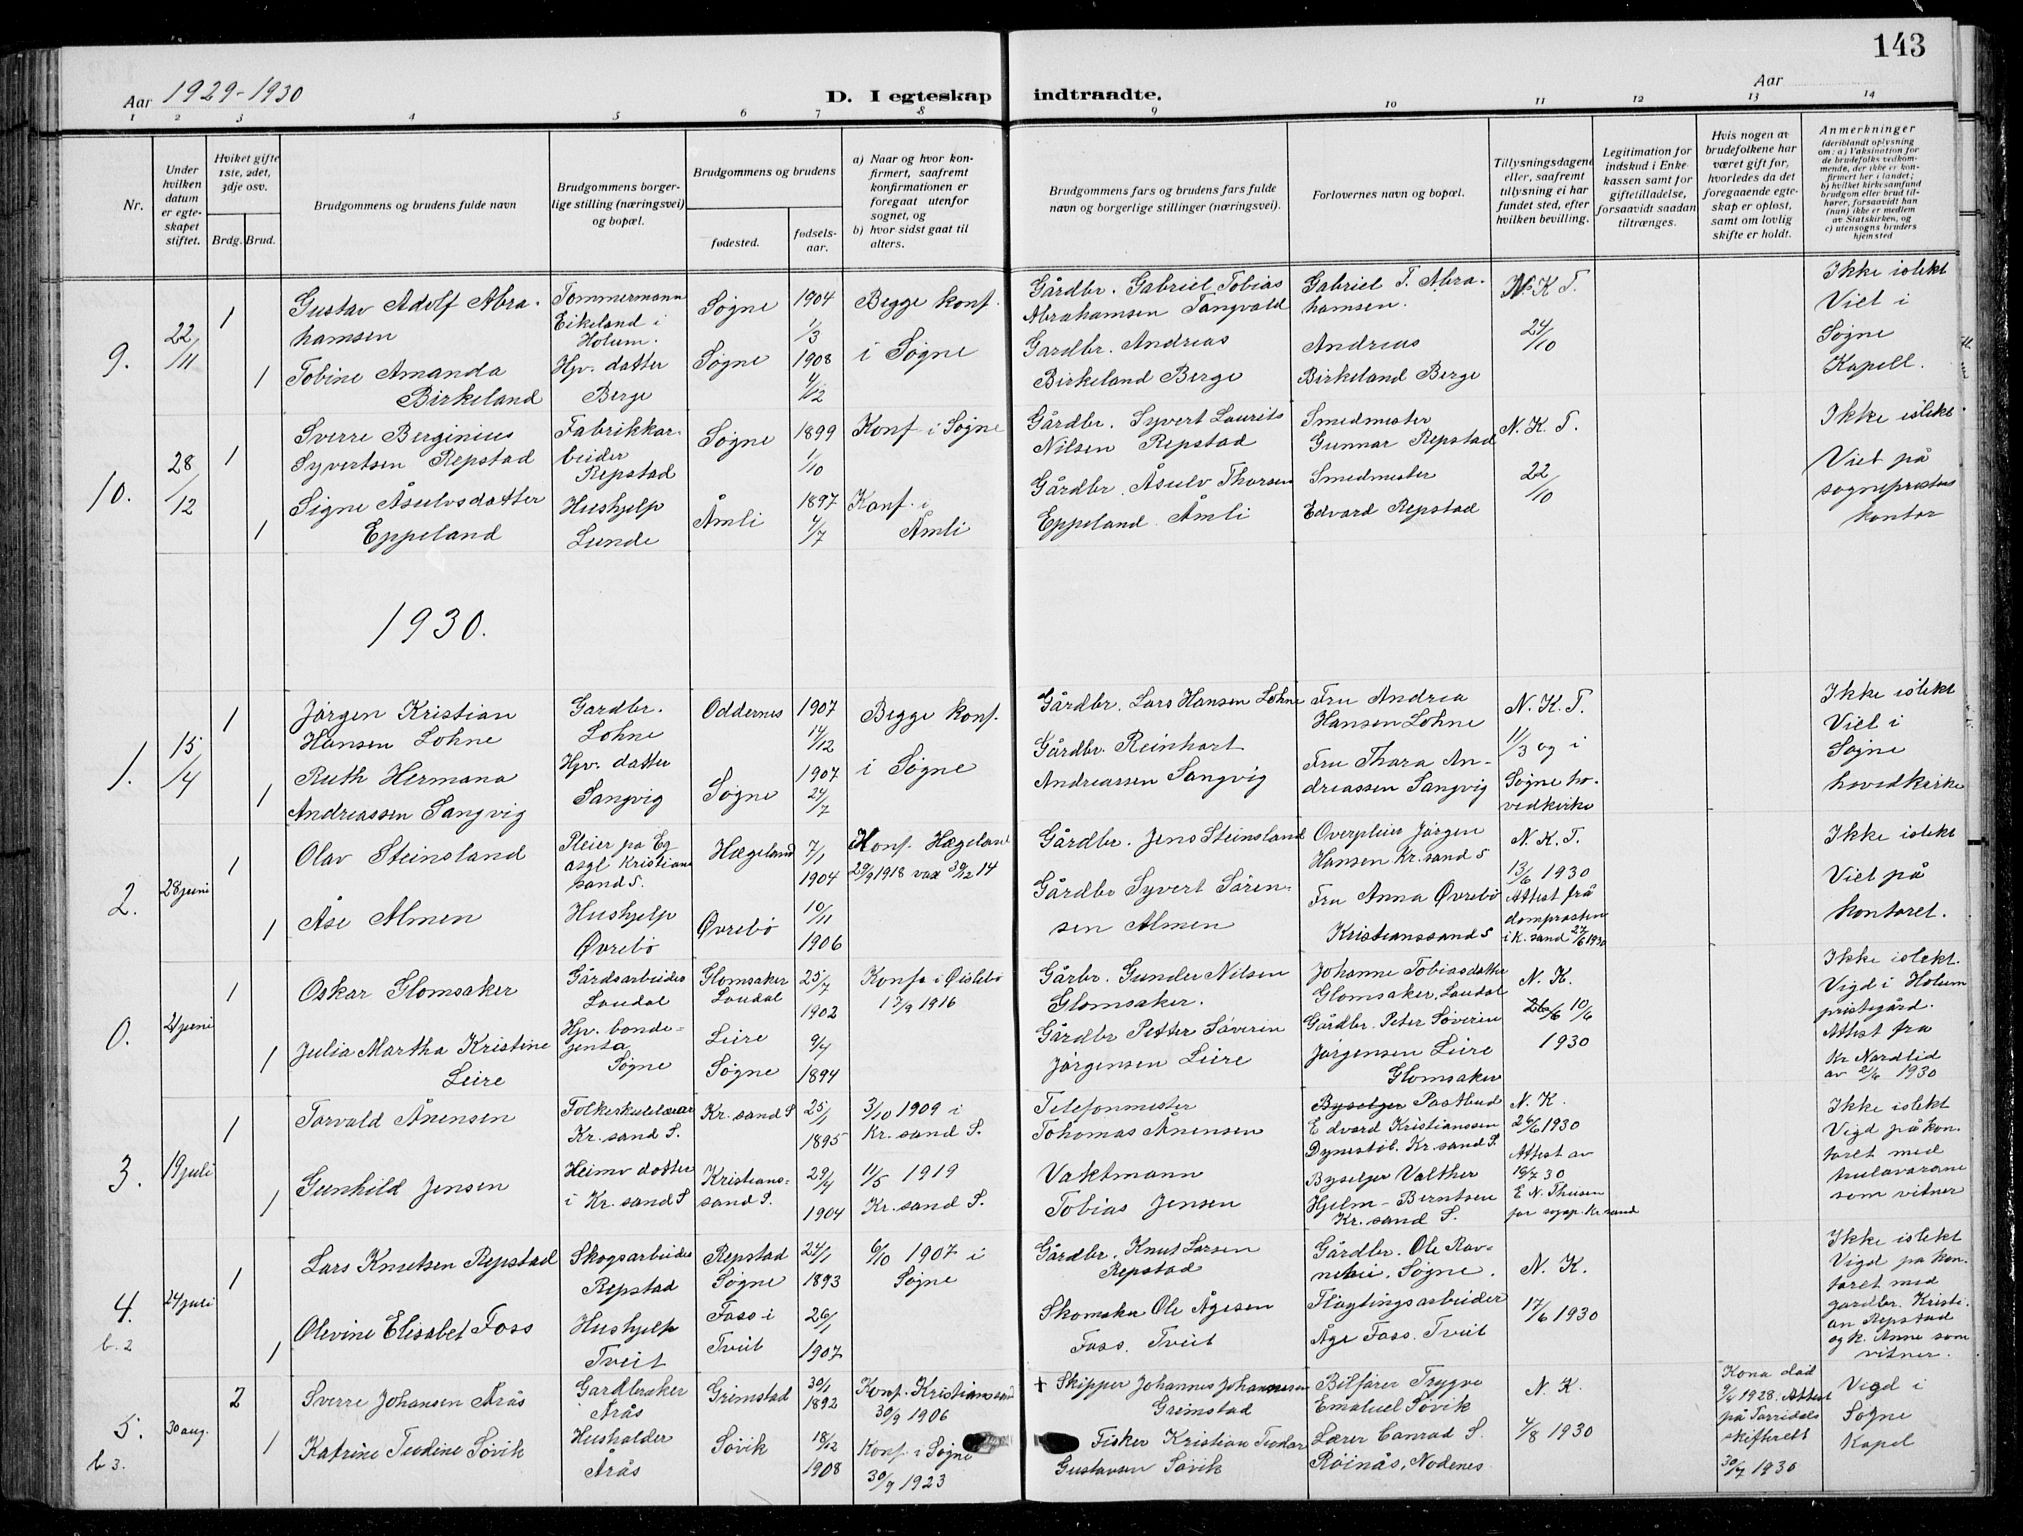 143
Aar 1929-1930
D. I egteskap indtraadte.
Aar
1 2 3 4 5 6 7 8 9 10 11 12 13 14
Nr.
Under hvilken datum er egteskapet stiftet.
Hviket gifte 1ste, 2det, 3dje osv.
Brdg. Brud.
Brudgommens og brudens fulde navn
Brudgommens borgerlige stilling (næringsvei) og bopæl.
Brudgommens og brudens
fødested.
fødselsaar.
a) Naar og hvor konfirmert, saafremt konfirmationen er foregaat utenfor sognet, og
b) hvor sidst gaat til alters.
Brudgommens fars og brudens fars fulde navn og borgerlige stillinger (næringsvei).
Forlovernes navn og bopæl.
Tillysningsdagene eller, saafremt tillysning ei har fundet sted, efter hvilken bevilling.
Legitimation for indskud i Enkekassen samt for giftetilladelse, forsaavidt saadan tiltrænges.
Hvis nogen av brudefolkene har været gift før, hvorledes da det foregaaende egteskap er opløst, samt om lovlig skifte er holdt.
Anmerkninger (deriblandt oplysning om: a) Vaksination for de brudefolks vedkommende, der ikke er konfirmert her i landet; b) hvilket kirkesamfund brudgom eller brud tilhører, forsaavidt han (hun) ikke er medlem av Statskirken, og c) utensogns bruders hjemsted
9. 22/11
1 Gustav Adolf Abrahamsen
Tømmermann Eikeland i Holum.
Søgne 1904 1/3
Begge konf. i Søgne
Gårdbr. Gabriel Tobias Abrahamsen Tangvald
Gabriel T. Abrahamsen.
N. K. T. 24/10
Ikke i slekt Viet i Søgne Kapell.
1 Tobine Amanda Birkeland
Hjv. datter Berge
Søgne 1908 4/12
Gardbr. Andreas Birkeland Berge
Andreas Birkeland Berge
10. 28/12
1 Sverre Berginius Syvertsen Repstad
Fabrikkarbeider Repstad
Søgne 1899 1/10
Konf i Søgne
Gårdbr. Syvert Laurits Nilsen Repstad
Smedmester Gunnar Repstad
N. K. T. 22/10
Ikke i slekt. Viet på sogneprestens kontor
1 Signe Åsulvsdatter Eppeland
Hushjelp Lunde
Åmli 1897 4/7
Konf. i Åmli
Gårdbr. Åsulv Thorsen Eppeland Åmli
Smedmester Edvard Repstad
1930.
1. 15/4
1 Jörgen Kristian Hansen Lohne
Gardbr. Lohne
Oddernes 1907 14/12
Begge konf. i Søgne
Gårdbr. Lars Hansen Lohne
Fru Andrea Hansen Lohne
N. K. T. 11/3 og i Søgne hovedkirke
Ikke i slekt Viet i Søgne hovedkirke
1 Ruth Hermana Andreassen Sangvig
Hjv. datter Sangvig
Søgne 1907 24/7
Gårdbr. Reinhart Andreassen Sangvig
Fru Thara Andreassen Sangvig
2. 28 juni
1 Olav Steinsland
Pleier på Eg asyl Kristiansand S.
Hægeland 7/1 1904
Konf. Hægeland 29/9 1918 vax 30/12 14
Gårdbr. Jens Steinsland
Overpleier Jörgen Hansen Kr.sand S
N. K. T. 13/6 1930 Attest frå domprosten i K. sand 27/6 1930
Ikke i slekt Viet på kontoret.
1 Åse Almen
Hushjelp Øvrebø
Øvrebø 10/11 1906
Gårdbr Syvert Sörensen Almen
Fru Anna Øvrebö Kristianssand S
0. 21 juni
1 Oskar Glomsaker
Gårdsarbeider Laudal
Glomsaker Laudal 25/7 1902
Konf i Øislebø 17/9 1916
Gårbr. Gunder Nilsen Glomsaker.
Johanne Tobiasdatter Glomsaker, Laudal
N. K. 10/6 1930
Ikke i slekt. Vigd i Holum prestegård. Attest fra Kr Nardlid av 21/6 1930
1 Julia Martha Kristine Leire
Hjv. bondegenta Søgne
Leire Søgne 9/4 1894
Gårdbr Petter Söverin Jörgensen Leire
Gårdbr. Peter Söverin Jörgensen Leire Glomsaker
3. 19 juli
1 Torvald Ånensen
Folkeskulelærar Kr. sand S.
Kr. sand S 25/1 1895
3/10 1909 i Kr. sand S.
Telefonmester Tohomas Ånensen
Byselger Postbud Edvard Kristianssen Dynestöl. Kr. sand S.
N. K. 26/6 1930 Attest av 16/7 30 E N. Thuesen for sogp. Kr sand
Ikke i slekt Vigd på kontoret med hulavarane som vitner
1 Gunhild Jensen
Heimv datter i Kr. sand S
Kristianssand S. 29/4 1904
11/5 1919 Kr. sand S.
Vaktmann Tobias Jensen
Byselger Valther Hjelm-Berntsen Kr. sand S.
4. b. 2 24 juli
1 Lars Knutsen Repstad
Skogsarbeider Repstad
Repstad Søgne 24/1 1893
6/10 1907 i Søgne
Gårdbr. Knut Larsen Repstad
Gårdbr. Ole Ravnehei. Søgne.
N. K. 17/6 1930
Ikke i slekt Vigd på kontoret med gardbr. Kristian Repstad og k. Anne som vitner.
1 Olevine Elisabet Foss
Hushjelp Tveit
Foss i Tveit 26/1 1907
Skomaker Ole Ågesen Foss. Tveit
Fløytingsarbeider Åge Foss. Tveit
5. b 3. 30 aug.
2 Sverre Johansen Årås
Gardbruker Årås
Grimstad 30/1 1892
Konf. Kristianssand 30/9 1906
+ Skipper Johannes Johannesen Grimstad
Bilfører Trygve Emanuel Søvik
N. K. 4/8 1930
Kona død 9/6 1928. Attest på Torridals skifterett 30/7 1930
Vigd i Søgne Kapel
1 Katrine Teodine Søvik
Husholder Årås
Søvik 18/12 1908
Konf. i Søgne 30/9 1923
Fisker Kristian Teodor Gustavsen Søvik
Lærer Conrad S. Röinås, Nodenes